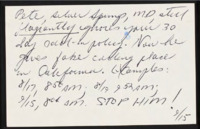 Pete, Silver Spring, MD, still
flagrantly ignores your 30
day cut-in policy. Now he
gives fake calling place
in California. Examples:
8/17, 8:55 am, 8/17 9 am,
9/15, 8 am. STOP HIM!
9/15